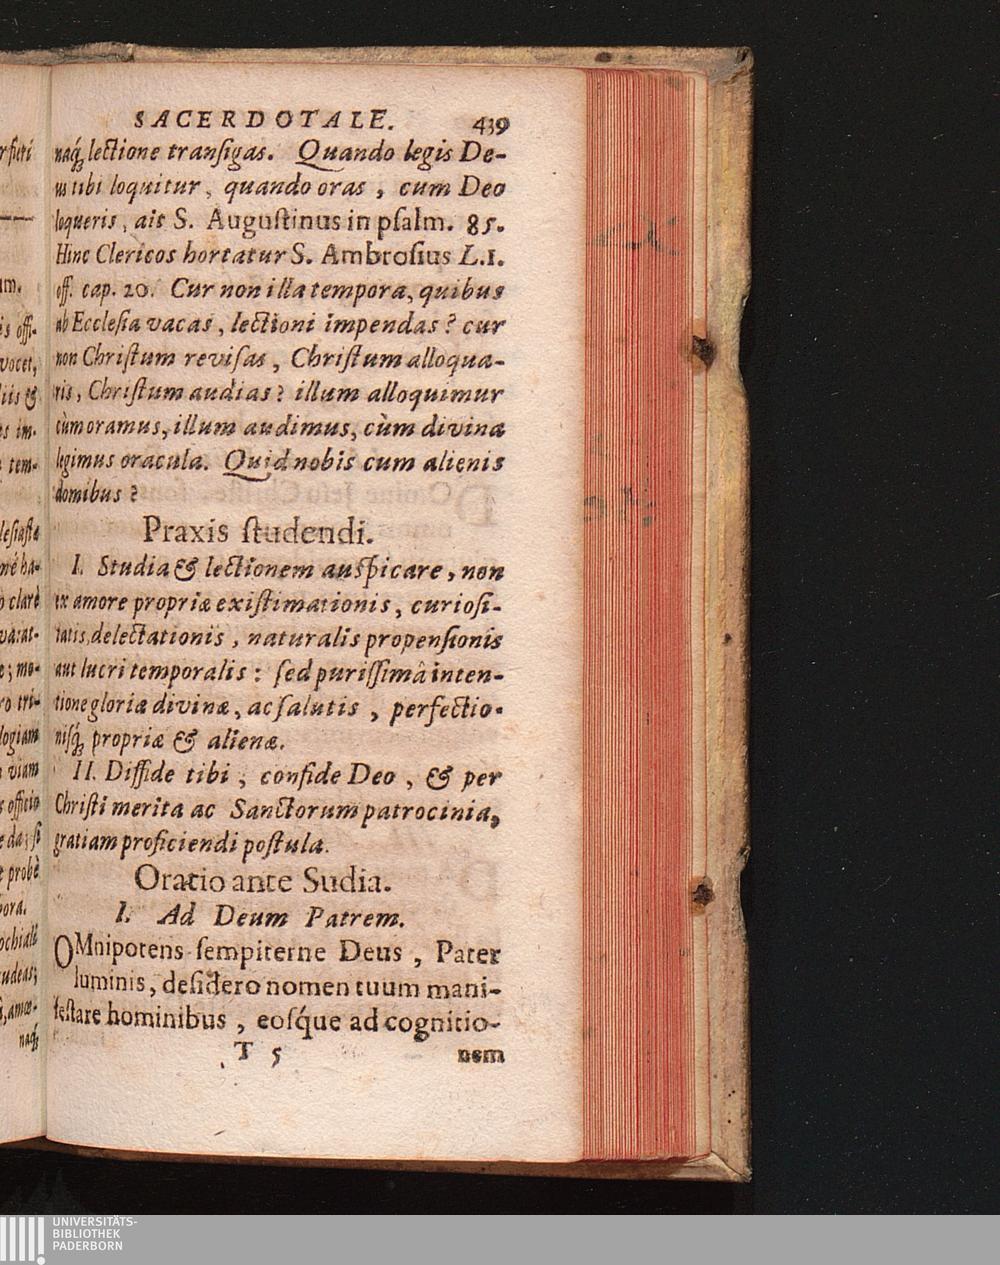 SACERDOTALE. 439
naq́; lectione tranſigas. Quando legis De-
us tibi loquitur, quando oras, cum Deo
loqueris, ait S. Auguſtinus in pſalm. 85.
Hinc Clericos hortatur S. Ambroſius L.1.
off. cap. 20. Cur non illa tempora, quibus
ab Eccleſia vacas, lectioni impendas? cur
non Chriſtum reviſas, Chriſtum alloqua-
ris, Chriſtum audias? illum alloquimur
cùm oramus, illum audimus, cùm divina
legimus oracula. Quid nobis cum alienis
domibus?
Praxis ſtudendi.
I. Studia & lectionem auſpicare, non
ex amore propriæ exiſtimationis, curioſi-
tatis, delectationis, naturalis propenſionis
aut lucri temporalis: ſed puriſſimâ inten-
tione gloriæ divinæ, ac ſalutis, perfectio-
niſq́; propriæ & alienæ.
II. Diffide tibi, confide Deo, & per
Chriſti merita ac Sanctorum patrocinia,
gratiam proficiendi poſtula.
Oratio ante Sudia.
I. Ad Deum Patrem.
OMnipotens ſempiterne Deus, Pater
luminis, deſidero nomen tuum mani-
feſtare hominibus, eoſq́ue ad cognitio-
T 5 nem
UNIVERSITÄTS-
BIBLIOTHEK
PADERBORN